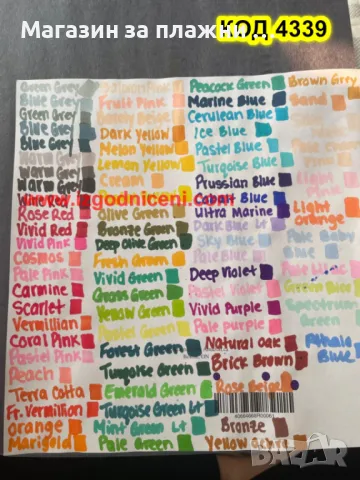 Магазин за плажни...
КОД 4339
Green Grey
Blue Grey
Green Grey
Blue Grey
Blue Grey
Warm Grey
Warm Grey
Warm Grey
Wine Red
Rose Red
Vivid Red
Vivid Pink
Cosmos
Pale Pink
Carmine
Scarlet
Vermillion
Coral Pink
Pastel Pink
Peach
Terra Cotta
Fr. Vermillion
Orange
Marigold
Salmon Pink
Fruit Pink
Barely Beige
Dark Yellow
Melon Yellow
Lemon Yellow
Cream
Olive Green
Bronze Green
Deep Olive Green
Fresh Green
Vivid Green
Grass Green
Yellow Green
Pastel Green
Forest Green
Turquoise Green
Emerald Green
Turquoise Green Lt
Mint Green Lt
Pale Green
Peacock Green
Marine Blue
Cerulean Blue
Ice Blue
Pastel Blue
Turqoise Blue
Prussian Blue
Cobalt Blue
Ultra Marine
Dark Blue Lt
Sky Blue
Pale Blue
Deep Violet
Pastel Violet
Vivid Purple
Pale purple
Natural oak
Brick Brown
Rose Beige
Bronze
Yellow Ochre
Brown Grey
Sand
Light Pink
Light orange
Pale Baby Blue
Green Bice
Spectrum Green
Pthalo Blue
www.izgodniceni.com